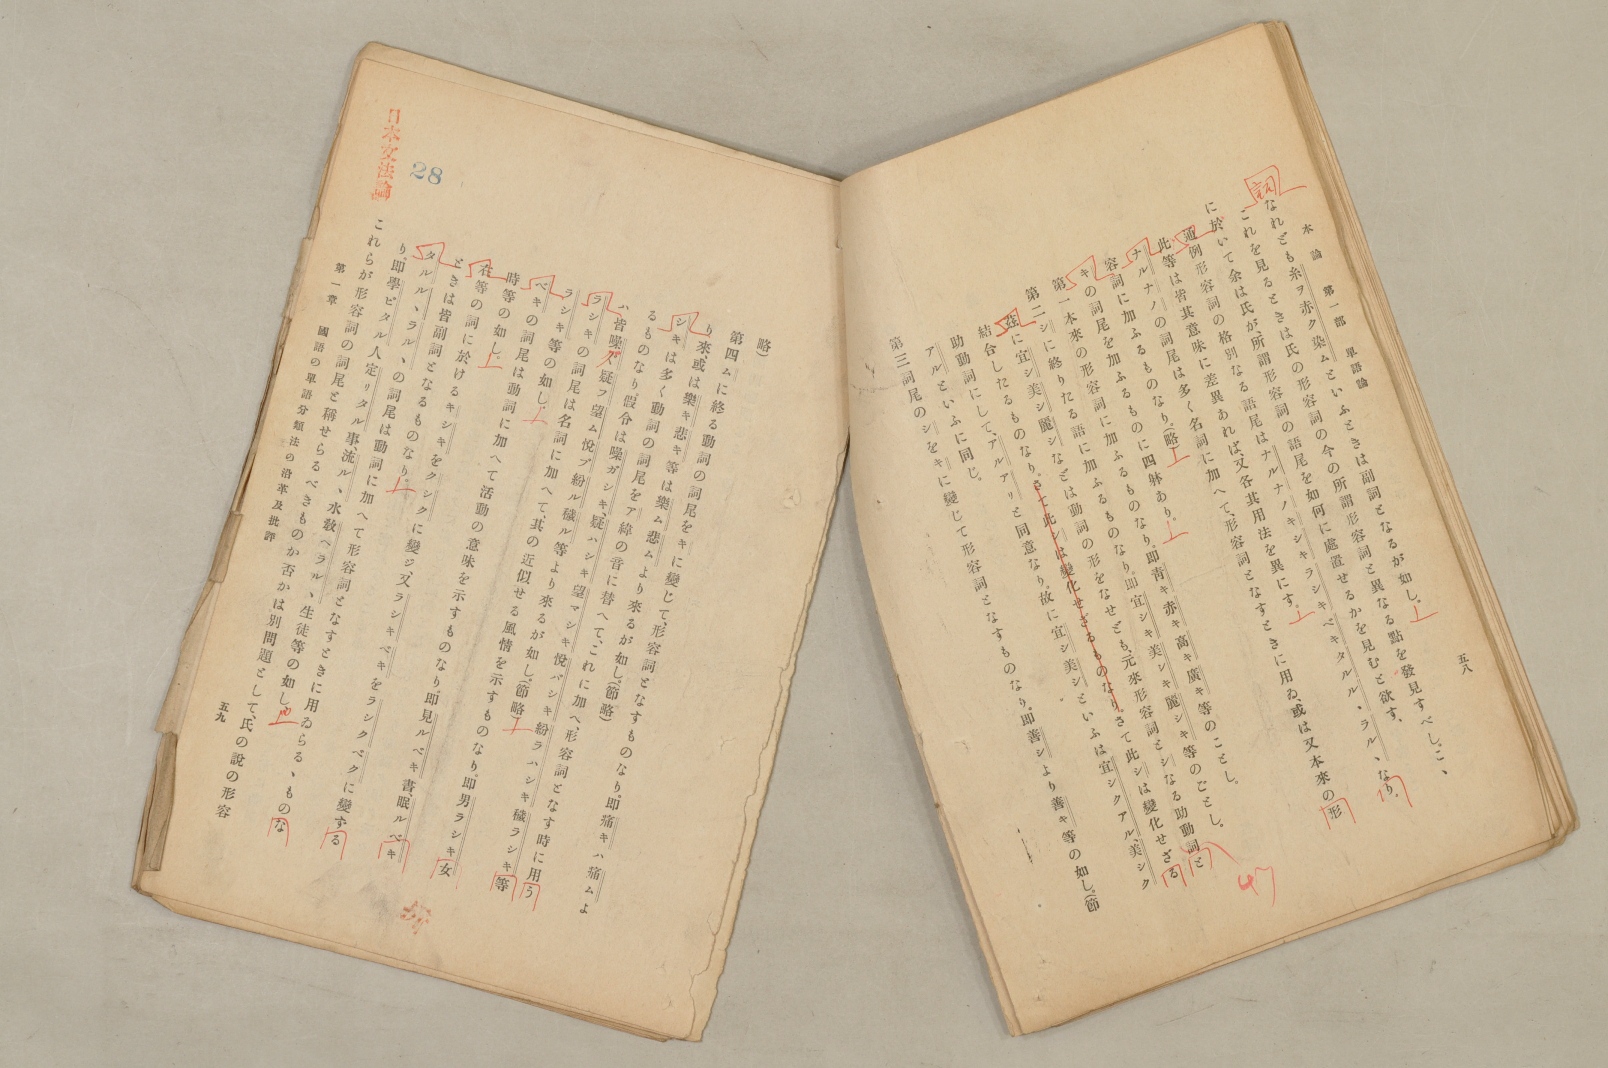 本論 第一部 單語論
五八
なれども糸ヲ赤ク染ムといふときは副詞となるが如し。
これを見るときは氏の形容詞の今の所謂形容詞と異なる點を發見すべし。こゝ
に於いて余は氏が所謂形容詞の語尾を如何に處置せるかを見むと欲す。
通例形容詞の格別なる語尾はナルナノキシキラシキベキタルル、ラル、なり。
此等は皆其意味に差異あれば又各其用法を異にす。
ナルナノの詞尾は多く名詞に加へて、形容詞となすときに用ゐ或は又本來の形
容詞に加ふるものなり。(略
キの詞尾を加ふるものに四躰あり。
第一 本來の形容詞に加ふるものなり。即靑キ赤キ高キ廣キ等のことし。
第二 シに終りたる語に加ふるものなり。即宜シキ美シキ麗シキ等のごとし。
茲に宜シ美シ麗シなどは動詞の形をなせども、元來形容詞とシなる助動詞と
結合したるものなり。さて此シは變化せざるものなり。さて此シは變化せざる
助動詞にして、アルアリと同意なり。故に宜シ美シといふは宜シクアル、美シク
アルといふに同じ。
第三 詞尾のシをキに變じて形容詞となすものなり。即善シより善キ等の如し。(節
略)
第四 ムに終る動詞の詞尾をキに變じて、形容詞となすものなり。即痛キハ痛ムよ
り來或は樂キ悲キ等は樂ム悲ムより來るが如し。(節略)
シキは多く動詞の詞尾をア緯の音に替へて、これに加へ、形容詞となす時に用う
るものなり。假令は噪ガシキ、疑ハシキ望マシキ悅バシキ紛ラハシキ穢ラシキ等
ハ皆噪グ疑フ望ム悅ブ紛ル穢ル等より來るが如し。(節略)
ラシキの詞尾は名詞に加へて、其の近似せる風情を示すものなり。即男ラシキ女
ラシキ等の如し
ベキの詞尾は動詞に加へて活動の意味を示すものなり。即見ルベキ書、眠ルベキ
時等の如し。
在等の詞に於けるキシキをクシクに變ジ、又ラシキベキをラシクベクに變する
ときは皆副詞となるものなり。
タルル、ラル、の詞尾は動詞に加へて形容詞となすときに用ゐらる、ものな
り。即學ビタル人定リタル事、流ル、水敎ヘラル、生徒等の如し
これらが形容詞の詞尾と稱せらるべきものか否かは別問題として、氏の說の形容
第一章 國語の單語分類法の沿革及批評
五九
日本文法論
28
詞
47